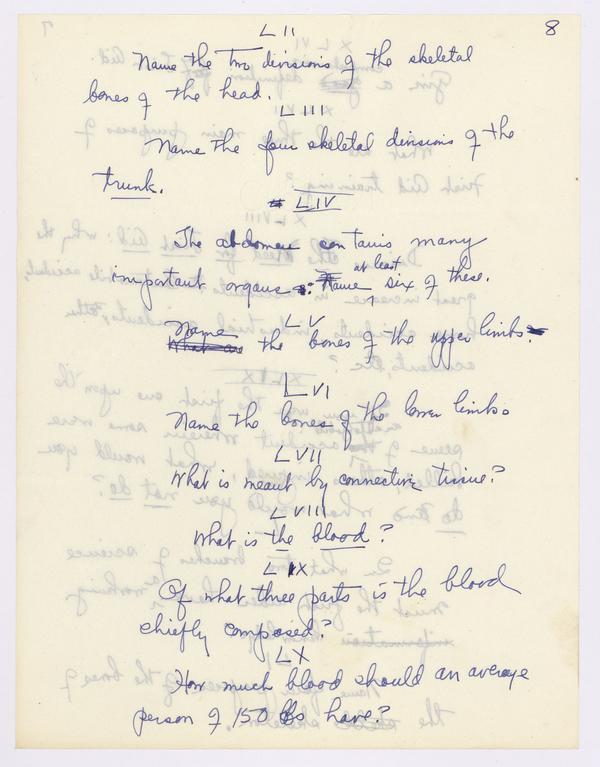 8
LII
Name the two divisions of the skeletal
bones of the head.
LIII
Name the four skeletal divisions of the
trunk.
LIV
The abdomen contains many
at least
important organs: Name six of these.
LV
Name
What are the bones of the upper limbs.
LVI
Name the bones of the lower limbs
LVII
What is meant by connective tissue?
LVIII
What is the blood?
LIX
Of what three parts is the blood
chiefly composed?
LX
How much blood should an average
person of 150 lbs have?